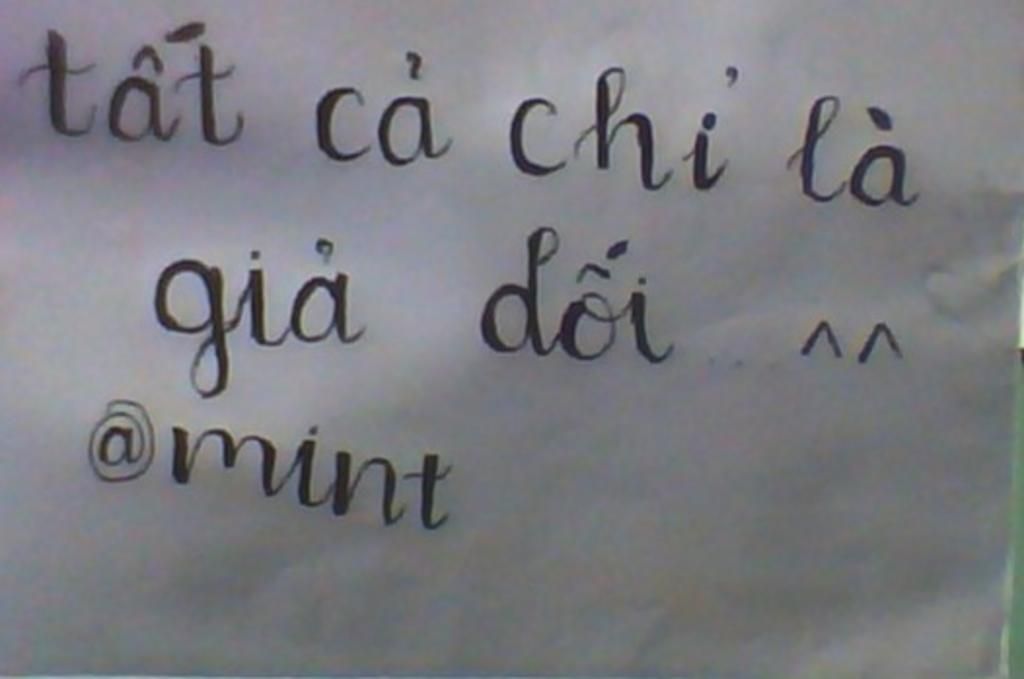 tất cả chỉ là
giả dối ... ^^
@mint